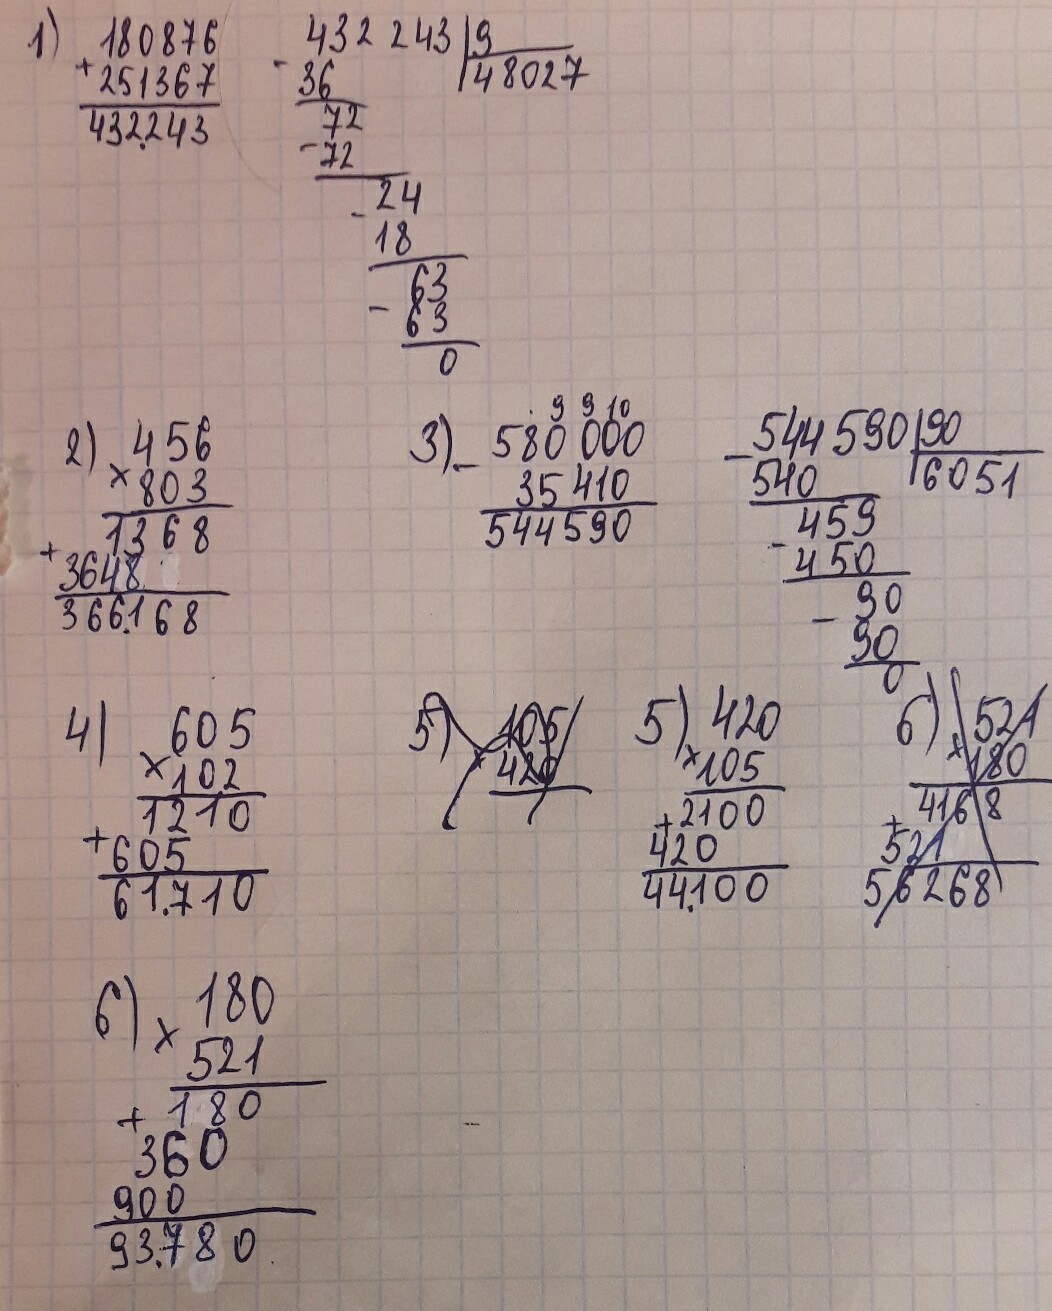 1) 180876
+ 251367
432.243
- 432 243 | 9
36 | 48027
72
- 72
- 24
18
63
- 63
0
2) 456
× 803
1368
+ 3648
366.168
9 9 10
3) - 580 000
35 410
544590
- 544 590 | 90
540 | 6051
459
- 450
90
- 90
0
4) 605
× 102
1210
+ 605
61.710
5) 105
× 420
5) 420
× 105
+ 2100
420
44.100
6) 521
× 180
4168
+ 521
56268
6) 180
× 521
+ 180
360
900
93.780